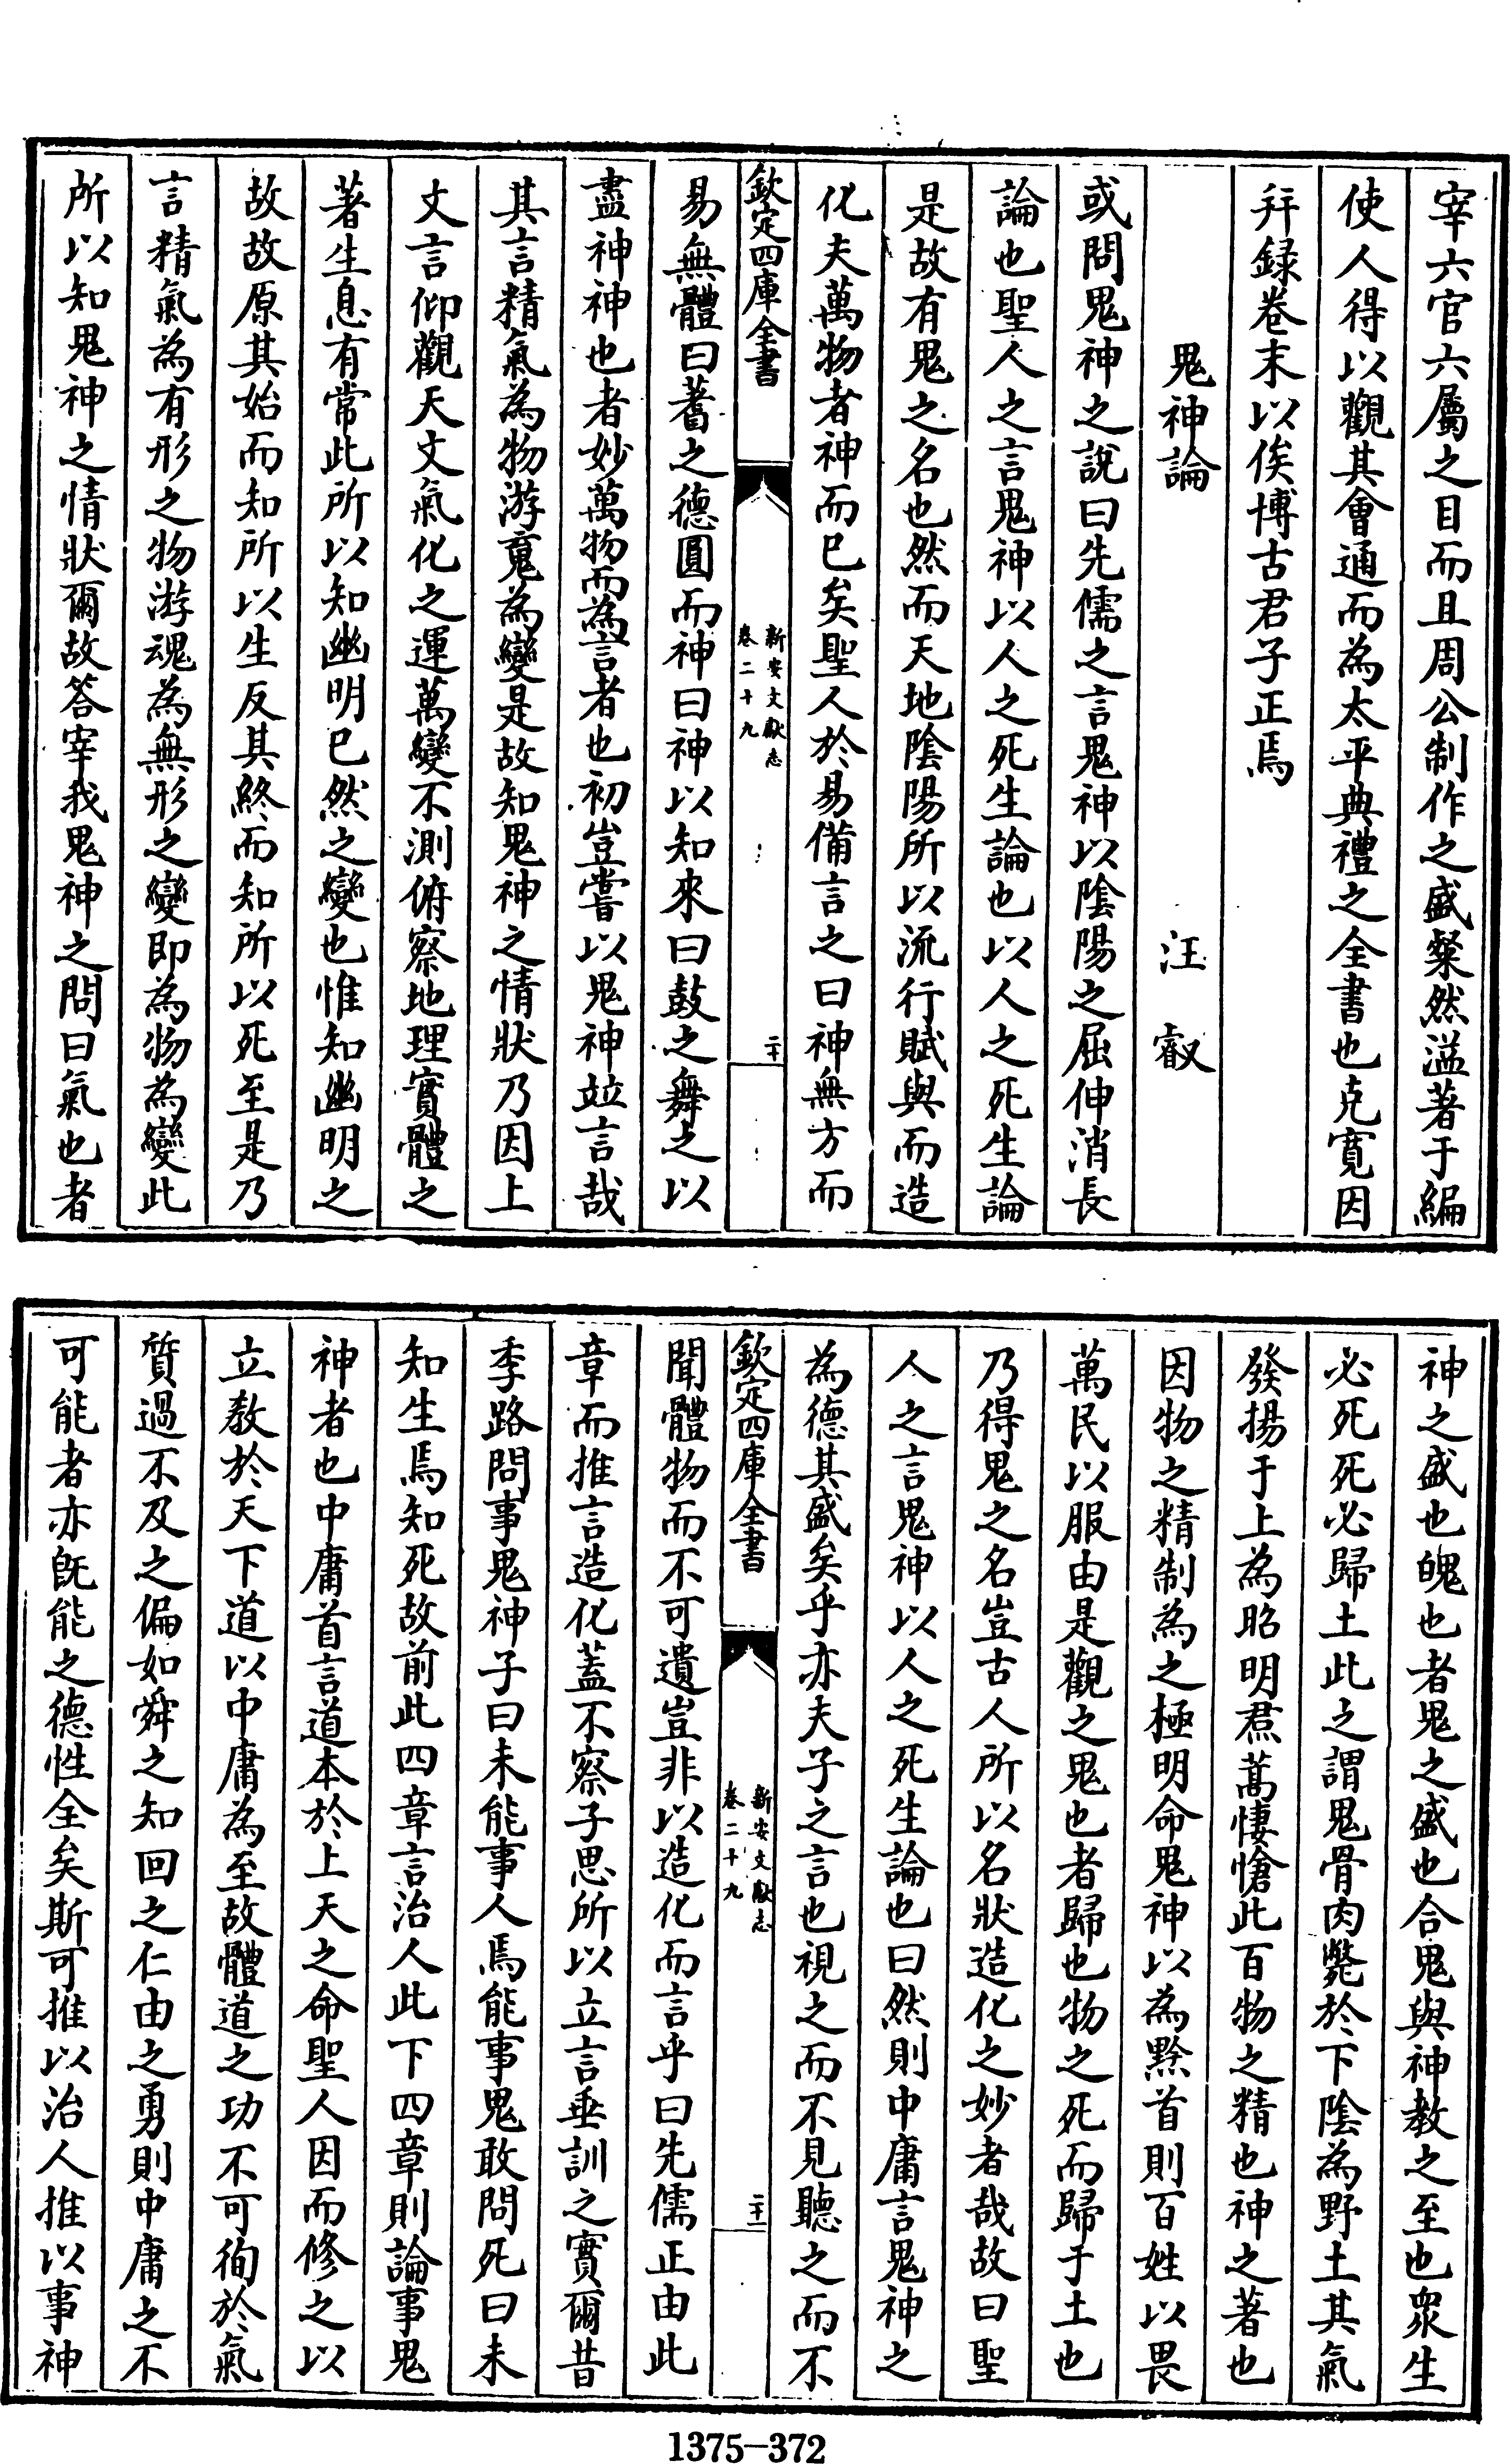 宰六官六屬之目而且周公制作之盛粲然溢著于編
使人得以觀其會通而為太平典禮之全書也克寛因
幷録卷末以俟博古君子正焉
鬼神論 汪叡
或問鬼神之說曰先儒之言鬼神以陰陽之屈伸消長
論也聖人之言鬼神以人之死生論也以人之死生論
是故有鬼之名也然而天地陰陽所以流行賦與而造
化夫萬物者神而已矣聖人於易備言之曰神無方而
欽定四庫全書
新安文獻志
卷二十九
二十
易無體曰蓍之德圓而神曰神以知來曰鼓之舞之以
盡神神也者妙萬物而為言者也初豈嘗以鬼神竝言哉
其言精氣為物游䰟為變是故知鬼神之情狀乃因上
文言仰觀天文氣化之運萬變不測俯察地理實體之
著生息有常此所以知幽明已然之變也惟知幽明之
故故原其始而知所以生反其終而知所以死至是乃
言精氣為有形之物游魂為無形之變即為物為變此
所以知鬼神之情狀爾故答宰我鬼神之問曰氣也者
神之盛也魄也者鬼之盛也合鬼與神教之至也衆生
必死死必歸土此之謂鬼骨肉斃於下陰為野土其氣
發揚于上為昭明焄蒿悽愴此百物之精也神之著也
因物之精制為之極明命鬼神以為黔首則百姓以畏
萬民以服由是觀之鬼也者歸也物之死而歸于土也
乃得鬼之名豈古人所以名狀造化之妙者哉故曰聖
人之言鬼神以人之死生論也曰然則中庸言鬼神之
為德其盛矣乎亦夫子之言也視之而不見聽之而不
欽定四庫全書
新安文獻志
卷二十九
二十一
聞體物而不可遺豈非以造化而言乎曰先儒正由此
章而推言造化蓋不察子思所以立言垂訓之實爾昔
季路問事鬼神子曰未能事人焉能事鬼敢問死曰未
知生焉知死故前此四章言治人此下四章則論事鬼
神者也中庸首言道本於上天之命聖人因而修之以
立教於天下道以中庸為至故體道之功不可徇於氣
質過不及之偏如舜之知回之仁由之勇則中庸之不
可能者亦旣能之德性全矣斯可推以治人推以事神
1375-372